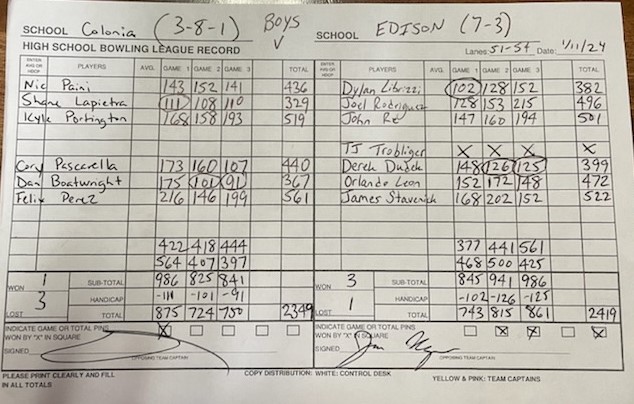 SCHOOL Colonia (3-8-1) BOYS V SCHOOL EDISON (7-3)
HIGH SCHOOL BOWLING LEAGUE RECORD Lanes: 51-54 Date: 1/11/24
ENTER AVG OR HDCP PLAYERS AVG. GAME 1 GAME 2 GAME 3 TOTAL ENTER AVG OR HDCP PLAYERS GAME 1 GAME 2 GAME 3 TOTAL
Nic Paini 143 152 141 436 Dylan Librizzi 102 128 152 382
Shane Lapietra 111 108 110 329 Joel Rodriguez 128 153 215 496
Kyle Portington 168 158 193 519 John 147 160 194 501
TJ Trobliger X X X X
Cory Pescarella 173 160 107 440 Derek Dudek 148 126 125 399
Dan Boatwright 175 101 91 367 Orlando Leon 152 172 148 472
Felix Perez 216 146 199 561 James Stavenick 168 202 152 522
422 418 444 377 441 561
564 407 397 468 500 425
WON 1 SUB-TOTAL 986 825 841 3 SUB-TOTAL 845 941 986
LOST 3 HANDICAP -111 -101 -91 1 HANDICAP -102 -126 -125
TOTAL 875 724 750 2349 TOTAL 743 815 861 2419
INDICATE GAME OR TOTAL PINS WON BY "X" IN SQUARE X INDICATE GAME OR TOTAL PINS WON BY "X" IN SQUARE X X X
SIGNED OPPOSING TEAM CAPTAIN SIGNED OPPOSING TEAM CAPTAIN
PLEASE PRINT CLEARLY AND FILL IN ALL TOTALS COPY DISTRIBUTION: WHITE: CONTROL DESK YELLOW & PINK: TEAM CAPTAINS